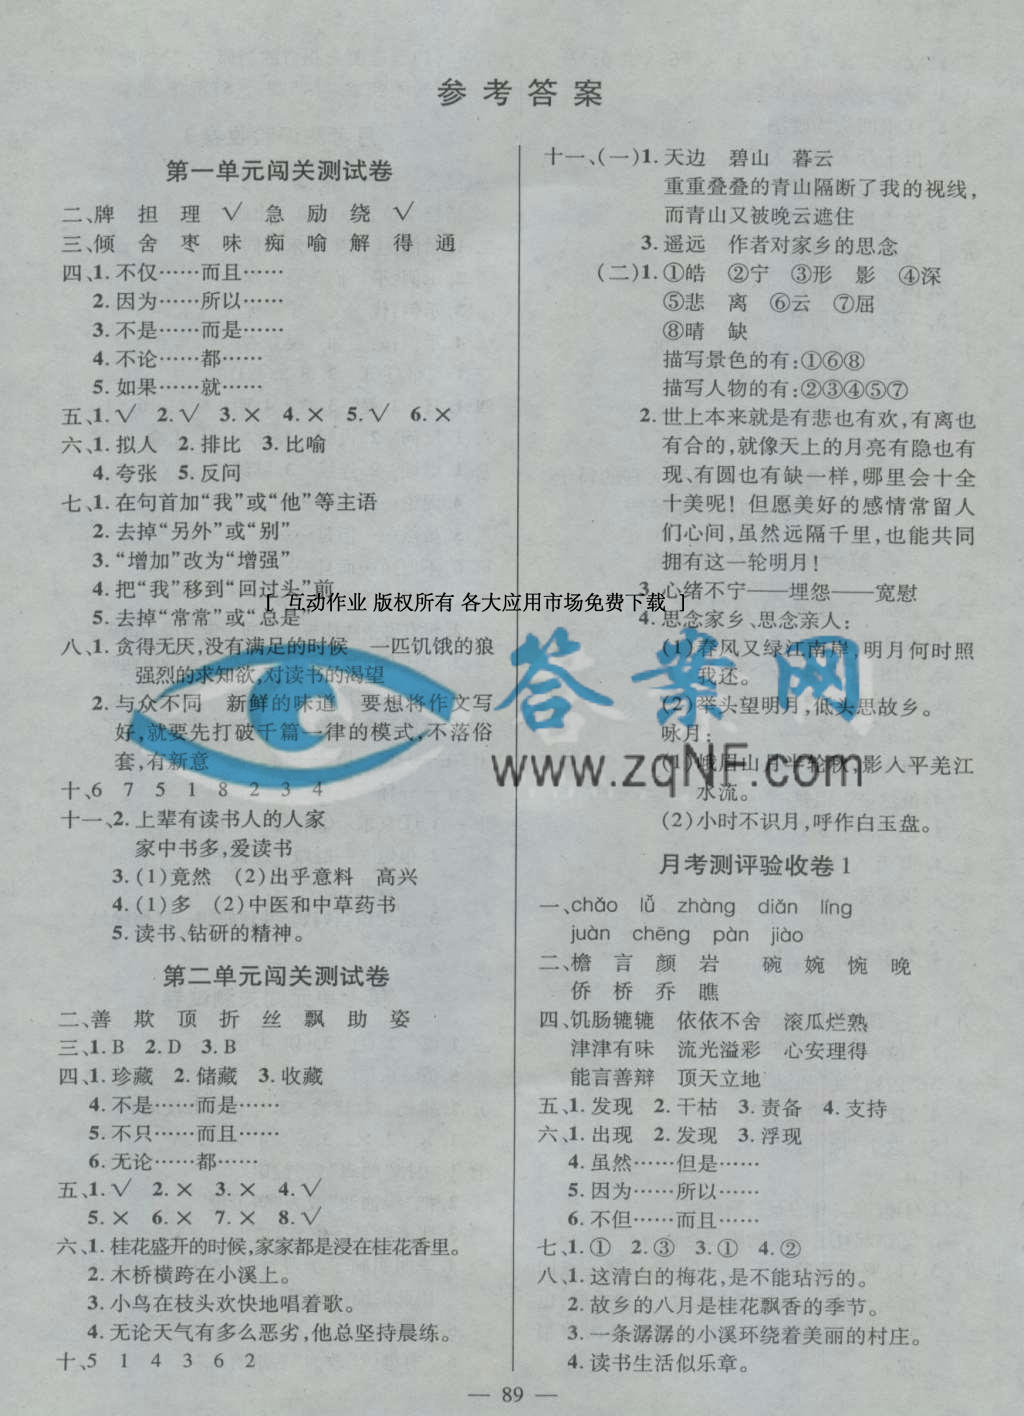 参考答案
第一单元闯关测试卷
二、牌 担 理 √ 急 励 绕 √
三、倾 舍 枣 味 痴 喻 解 得 通
四、1. 不仅……而且……
2. 因为……所以……
3. 不是……而是……
4. 不论……都……
5. 如果……就……
五、1. √ 2. √ 3. × 4. × 5. √ 6. ×
六、1. 拟人 2. 排比 3. 比喻
4. 夸张 5. 反问
七、1. 在句首加“我”或“他”等主语
2. 去掉“另外”或“别”
3. “增加”改为“增强”
4. 把“我”移到“回过头”前
5. 去掉“常常”或“总是”
八、1. 贪得无厌,没有满足的时候 一匹饥饿的狼
强烈的求知欲,对读书的渴望
2. 与众不同 新鲜的味道 要想将作文写
好,就要先打破千篇一律的模式,不落俗
套,有新意
十、6 7 5 1 8 2 3 4
十一、2. 上辈有读书人的人家
家中书多,爱读书
3. (1)竟然 (2)出乎意料 高兴
4. (1)多 (2)中医和中草药书
5. 读书、钻研的精神。
第二单元闯关测试卷
二、善 欺 顶 折 丝 飘 助 姿
三、1. B 2. D 3. B
四、1. 珍藏 2. 储藏 3. 收藏
4. 不是……而是……
5. 不只……而且……
6. 无论……都……
五、1. √ 2. × 3. × 4. √
5. × 6. × 7. × 8. √
六、1. 桂花盛开的时候,家家都是浸在桂花香里。
2. 木桥横跨在小溪上。
3. 小鸟在枝头欢快地唱着歌。
4. 无论天气有多么恶劣,他总坚持晨练。
十、5 1 4 3 6 2
十一、(一)1. 天边 碧山 暮云
重重叠叠的青山隔断了我的视线,
而青山又被晚云遮住
3. 遥远 作者对家乡的思念
(二)1. ①皓 ②宁 ③形 影 ④深
⑤悲 离 ⑥云 ⑦屈
⑧晴 缺
描写景色的有:①⑥⑧
描写人物的有:②③④⑤⑦
2. 世上本来就是有悲也有欢,有离也
有合的,就像天上的月亮有隐也有
现、有圆也有缺一样,哪里会十全
十美呢！但愿美好的感情常留人
们心间,虽然远隔千里,也能共同
拥有这一轮明月！
3. 心绪不宁——埋怨——宽慰
4. 思念家乡、思念亲人:
(1)春风又绿江南岸,明月何时照
我还。
(2)举头望明月,低头思故乡。
咏月:
(1)峨眉山月半轮秋,影入平羌江
水流。
(2)小时不识月,呼作白玉盘。
月考测评验收卷1
一、chǎo lǚ zhàng diǎn líng
juàn chēng pàn jiào
二、檐 言 颜 岩 碗 婉 惋 晚
侨 桥 乔 瞧
四、饥肠辘辘 依依不舍 滚瓜烂熟
津津有味 流光溢彩 心安理得
能言善辩 顶天立地
五、1. 发现 2. 干枯 3. 责备 4. 支持
六、1. 出现 2. 发现 3. 浮现
4. 虽然……但是……
5. 因为……所以……
6. 不但……而且……
七、1. ① 2. ③ 3. ① 4. ②
八、1. 这清白的梅花,是不能玷污的。
2. 故乡的八月是桂花飘香的季节。
3. 一条潺潺的小溪环绕着美丽的村庄。
4. 读书生活似乐章。
— 89 —
[ 互动作业 版权所有 各大应用市场免费下载 ]
答案网
www.zqNF.com